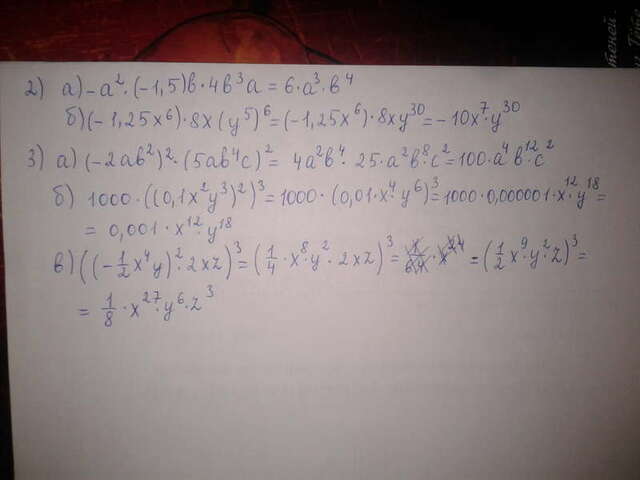 2) а) -a²·(-1,5)b·4b³a = 6·a³·b⁴
б) (-1,25x⁶)·8x(y⁵)⁶ = (-1,25x⁶)·8xy³⁰ = -10x⁷·y³⁰
3) а) (-2ab²)²·(5ab⁴c)² = 4a²b⁴·25·a²b⁸·c² = 100·a⁴b¹²·c²
б) 1000·((0,1x²y³)²)³ = 1000·(0,01·x⁴y⁶)³ = 1000·0,000001·x¹²·y¹⁸ =
= 0,001·x¹²·y¹⁸
в) ((-1/2x⁴y)²·2xz)³ = (1/4·x⁸·y²·2xz)³ = = (1/2x⁹·y²·z)³ =
= 1/8·x²⁷·y⁶·z³